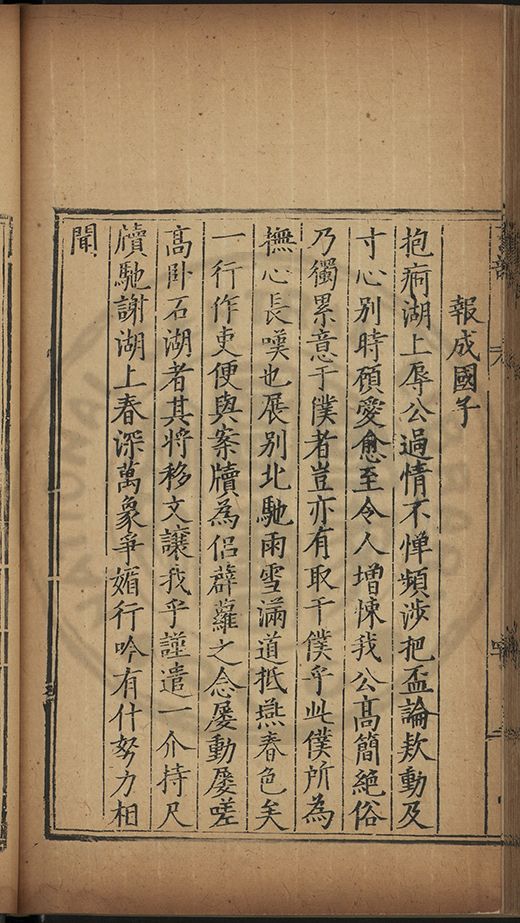 報成國子
抱痾湖上辱公過情不憚頻涉把盃論款動及
寸心別時顧愛愈至令人增悚我公高簡絶俗
乃獨累意于僕者豈亦有取于僕乎此僕所為
撫心長嘆也展別北馳雨雪滿道抵燕春色矣
一行作吏便與案牘為侣薜蘿之念屡動屡嗟
高卧石湖者其將移文讓我乎謹遣一介持尺
牘馳謝湖上春深萬象爭媚行吟有什努力相
聞